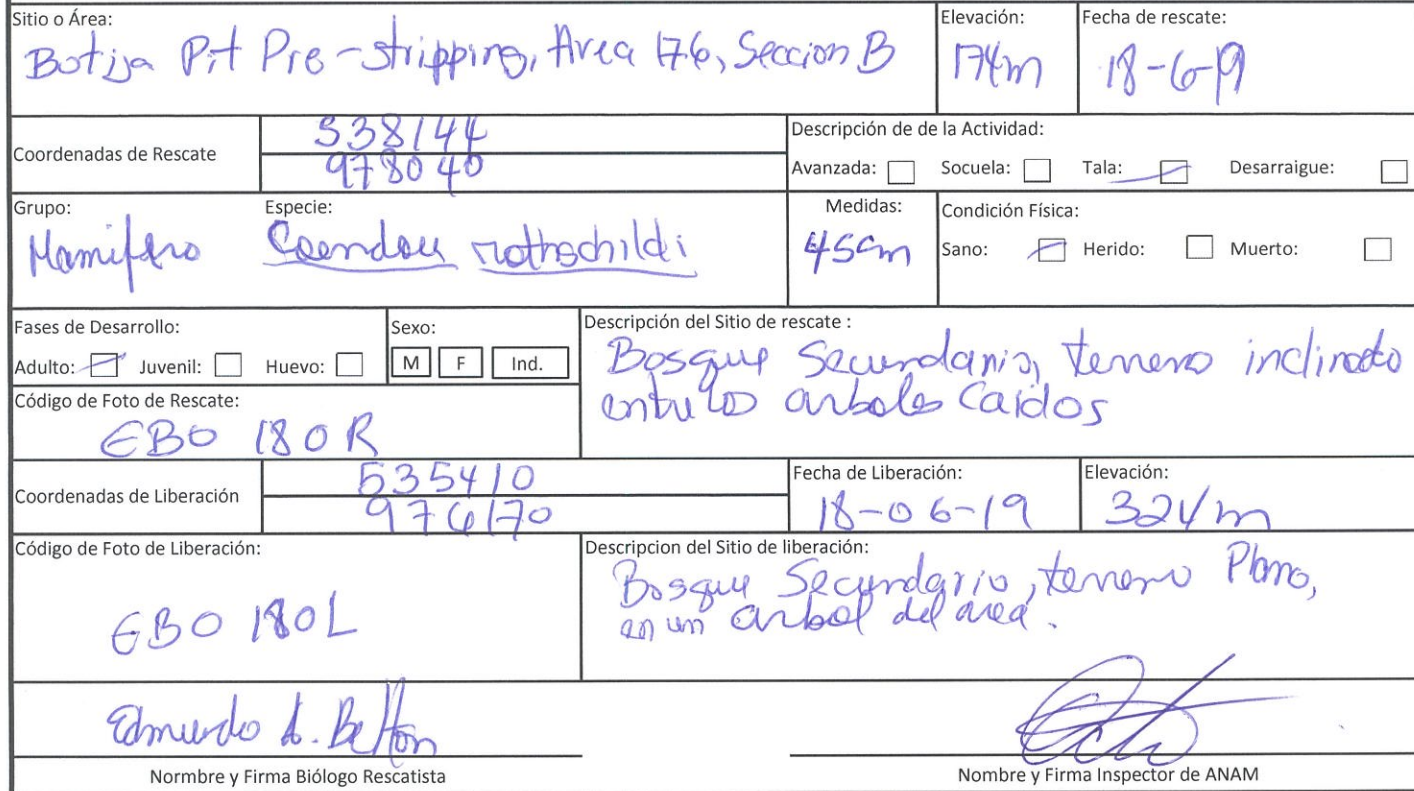 Sitio o Área:
Botija Pit Pre-stripping, Area 176, Seccion B
Elevación:
174m
Fecha de rescate:
18-6-19
Coordenadas de Rescate
538144
978040
Descripción de de la Actividad:
Avanzada: Socuela: Tala: Desarraigue:
Grupo:
Mamifero
Especie:
Coendou rothschildi
Medidas:
45cm
Condición Física:
Sano: Herido: Muerto:
Fases de Desarrollo:
Adulto: Juvenil: Huevo:
Sexo:
M F Ind.
Descripción del Sitio de rescate :
Bosque Secundario, terreno inclinado
entre los arboles Caidos
Código de Foto de Rescate:
EBO 180R
Coordenadas de Liberación
535410
976170
Fecha de Liberación:
18-06-19
Elevación:
324m
Código de Foto de Liberación:
EBO 180L
Descripcion del Sitio de liberación:
Bosque Secundario, terreno Plano,
en un arbol del area.
Edmundo A. Belton
Normbre y Firma Biólogo Rescatista
Nombre y Firma Inspector de ANAM